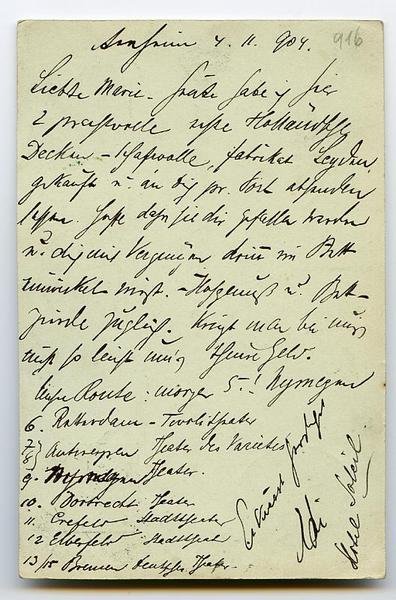 Arnheim 4. 11. 904. 916
Liebste Marie - heute habe ich hier
2 prachtvolle echte Holländische
Decken - Schafwolle, Fabrikat Leyden,
gekauft u. an dich pr. Post absenden
lassen. Hoffe daß sie dir gefallen werden
u. dich mit Vergnügen drin im Bett
einwickeln wirst. - u. Bett-
zugleich. Kriegt man bei uns
nicht so leicht um's theure Geld.
Unsere Route: morgen 5.! Nymegen
6. Rotterdam - Tivolitheater
7/8} Antwerpen Theater des Varietes
9. Theater.
10. Dortrecht Theater
11. Crefeld Stadttheater
12 Elberfeld Stadttheat
13/15 Bremen deutsches Theater.
Hotel Soleil